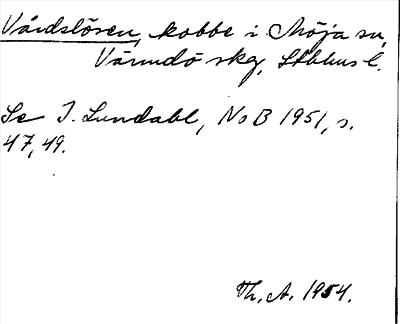 Vårdslösen, kobbe i Möja sn,
Värmdö skg, Sthlms l.
Se I. Lundahl, NoB 1951, s.
47, 49.
Th. A. 1954.